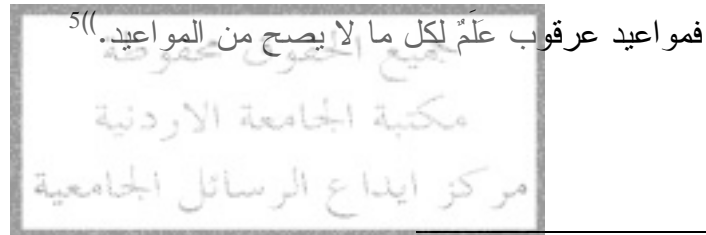 فمواعيد عرقوب عَلَمٌ لكل ما لا يصح من المواعيد.))5
جميع الحقوق محفوظة
مكتبة الجامعة الاردنية
مركز ايداع الرسائل الجامعية